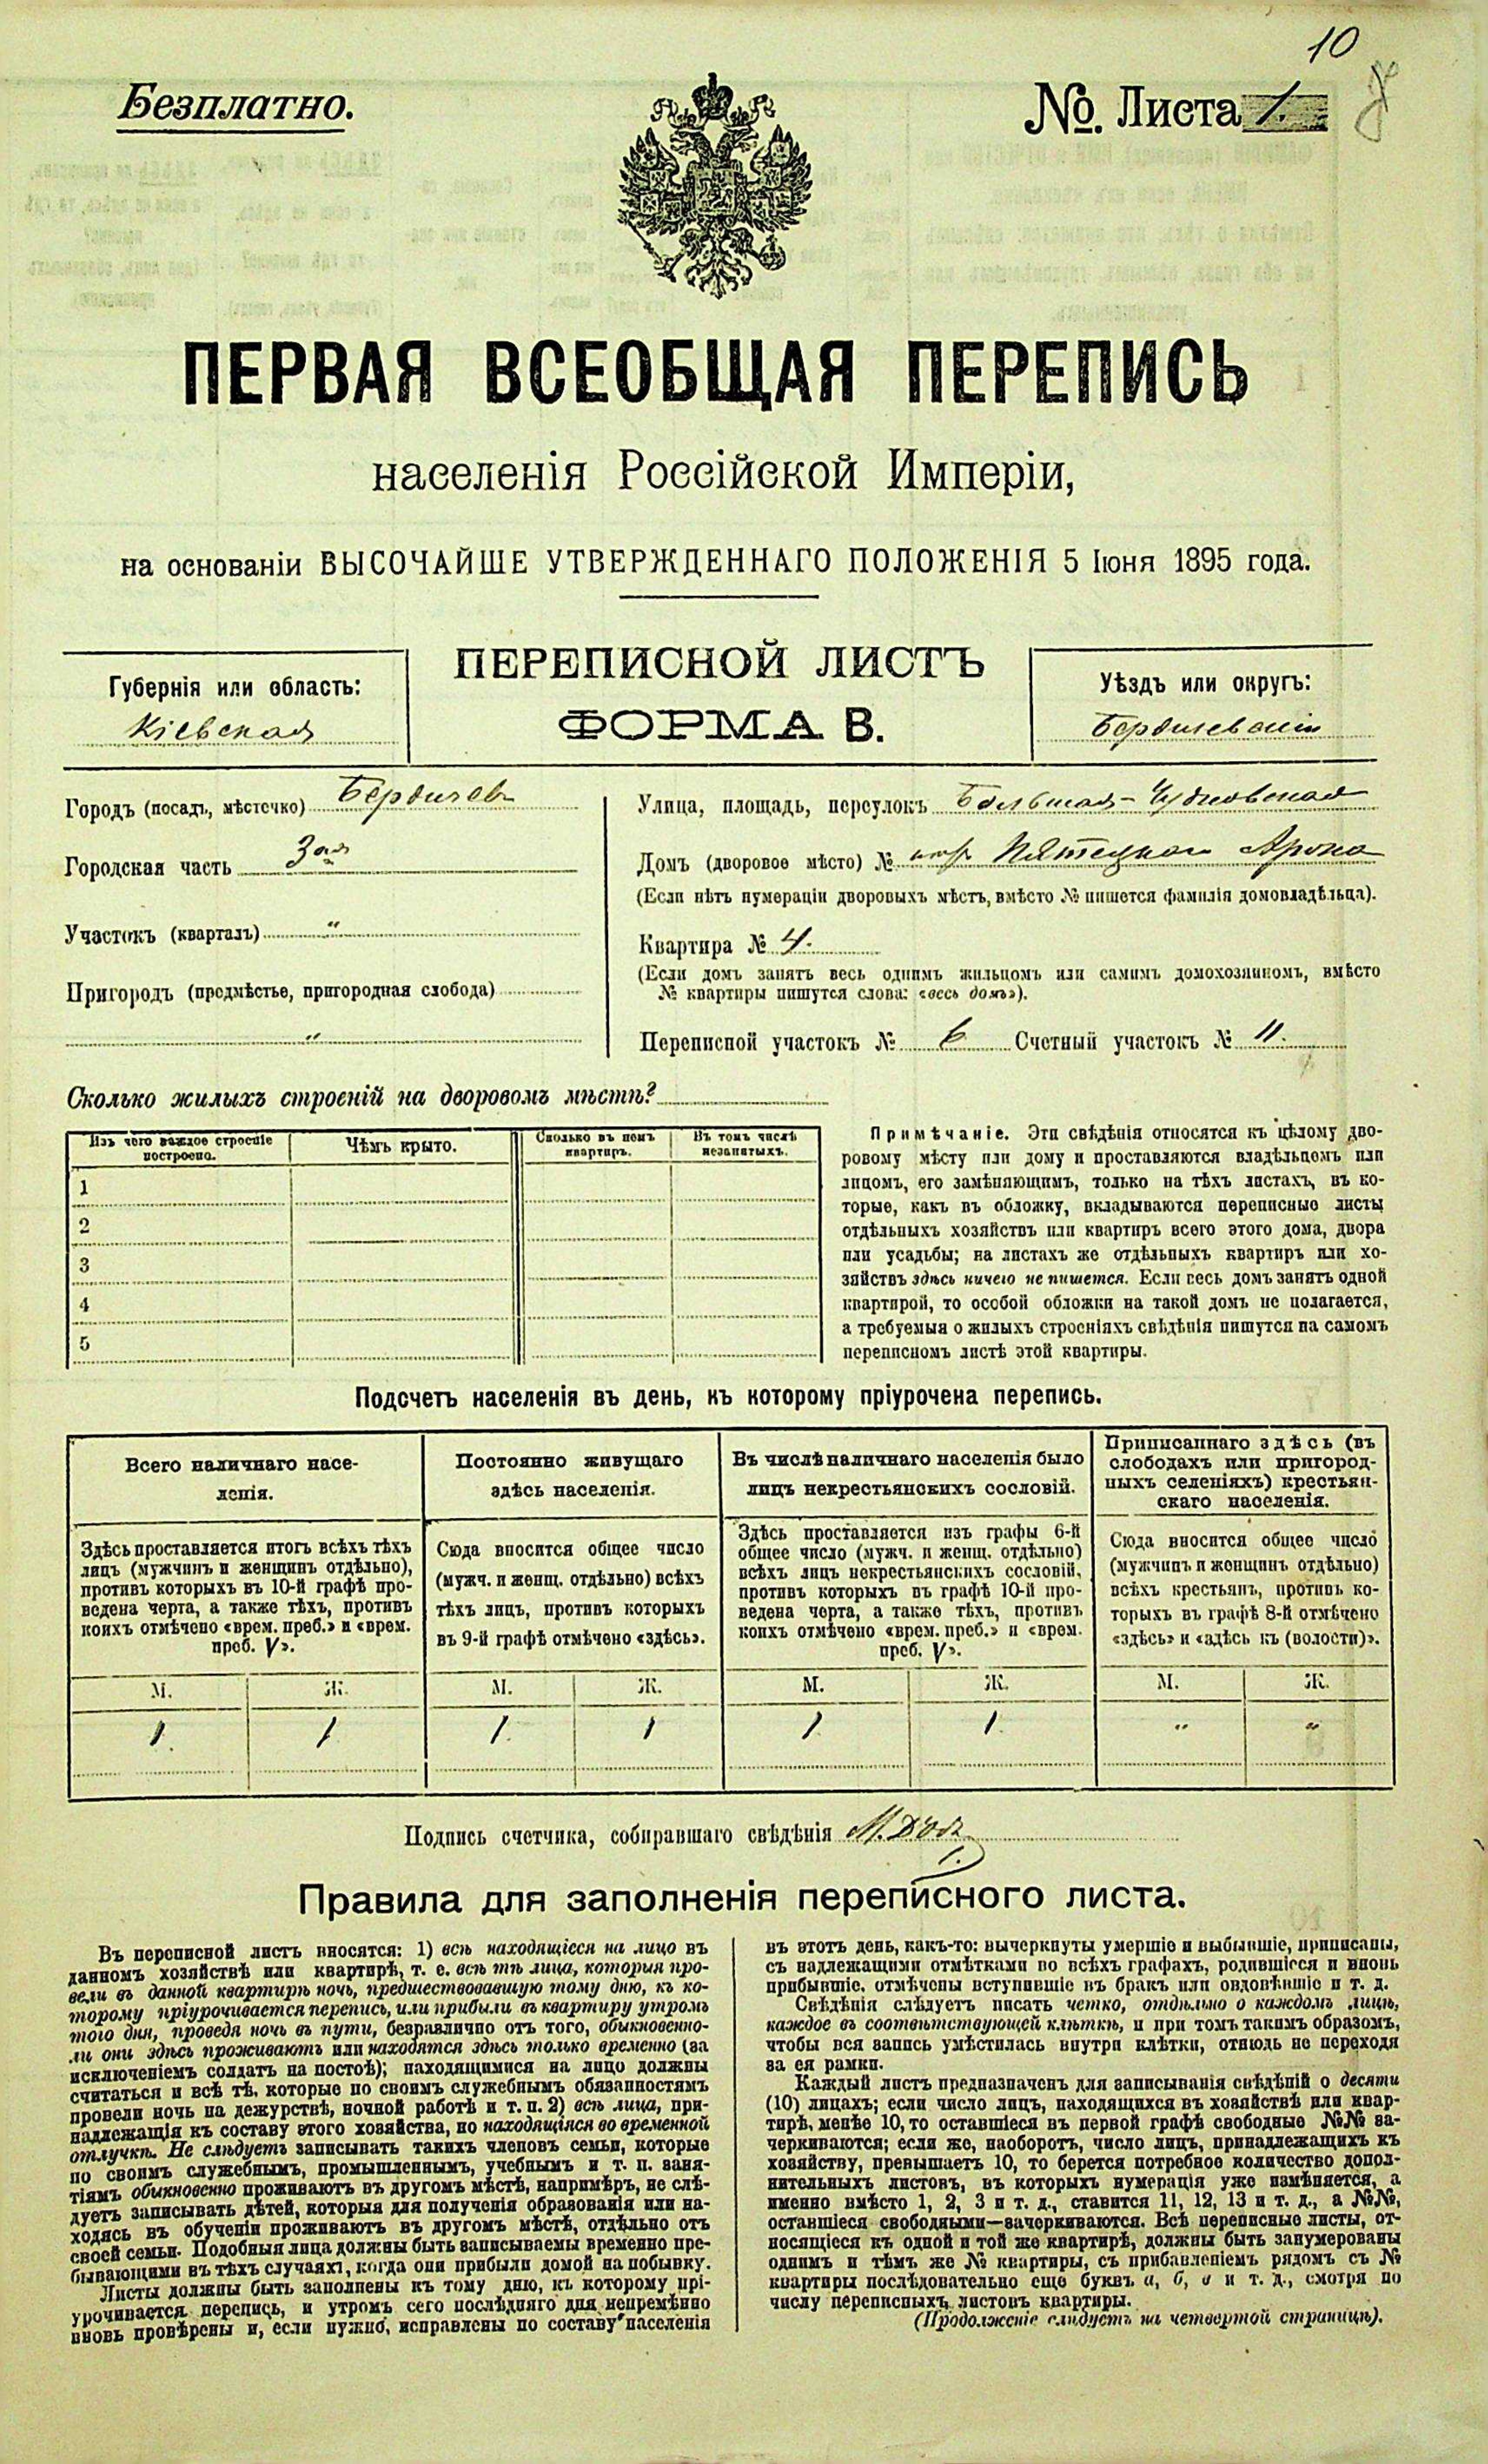 10
Безплатно.
№. Листа 1.
ПЕРВАЯ ВСЕОБЩАЯ ПЕРЕПИСЬ
населенія Россійской Имперіи,
на основаніи ВЫСОЧАЙШЕ УТВЕРЖДЕННАГО ПОЛОЖЕНІЯ 5 Іюня 1895 года.
Губернія или область:
Кіевская
ПЕРЕПИСНОЙ ЛИСТЪ
ФОРМА В.
Уѣздъ или округъ:
Бердичевскій
Городъ (посадъ, мѣстечко) Бердичев
Городская часть 3ая
Участокъ (кварталъ) "
Пригородъ (предмѣстье, пригородная слобода)
"
Улица, площадь, переулокъ Большая-Чудновская
Домъ (дворовое мѣсто) № Арона
(Если нѣтъ нумераціи дворовыхъ мѣстъ, вмѣсто № пишется фамилія домовладѣльца).
Квартира № 4.
(Если домъ занятъ весь однимъ жильцомъ или самимъ домохозяиномъ, вмѣсто
№ квартиры пишутся слова: «весь домъ»).
Переписной участокъ № 6 Счетный участокъ № 11.
Сколько жилыхъ строеній на дворовомъ мѣстѣ?
Изъ чего каждое строеніе
построено.
Чѣмъ крыто.
Сколько въ немъ
квартиръ.
Въ томъ числѣ
незанятыхъ.
1
2
3
4
5
Примѣчаніе. Эти свѣдѣнія относятся къ цѣлому дво-
ровому мѣсту или дому и проставляются владѣльцемъ или
лицомъ, его замѣняющимъ, только на тѣхъ листахъ, въ ко-
торые, какъ въ обложку, вкладываются переписные листы
отдѣльныхъ хозяйствъ или квартиръ всего этого дома, двора
или усадьбы; на листахъ же отдѣльныхъ квартиръ или хо-
зяйствъ здѣсь ничего не пишется. Если весь домъ занятъ одной
квартирой, то особой обложки на такой домъ не полагается,
а требуемыя о жилыхъ строеніяхъ свѣдѣнія пишутся на самомъ
переписномъ листѣ этой квартиры.
Подсчетъ населенія въ день, къ которому пріурочена перепись.
Всего наличнаго насе-
ленія.
Здѣсь проставляется итогъ всѣхъ тѣхъ
лицъ (мужчинъ и женщинъ отдѣльно),
противъ которыхъ въ 10-й графѣ про-
ведена черта, а также тѣхъ, противъ
коихъ отмѣчено «врем. преб.» и «врем.
преб. V».
Постоянно живущаго
здѣсь населенія.
Сюда вносится общее число
(мужч. и женщ. отдѣльно) всѣхъ
тѣхъ лицъ, противъ которыхъ
въ 9-й графѣ отмѣчено «здѣсь».
Въ числѣ наличнаго населенія было
лицъ некрестьянскихъ сословій.
Здѣсь проставляется изъ графы 6-й
общее число (мужч. и женщ. отдѣльно)
всѣхъ лицъ некрестьянскихъ сословій,
противъ которыхъ въ графѣ 10-й про-
ведена черта, а также тѣхъ, противъ
коихъ отмѣчено «врем. преб.» и «врем.
преб. V».
Приписаннаго здѣсь (въ
слободахъ или пригород-
ныхъ селеніяхъ) крестьян-
скаго населенія.
Сюда вносится общее число
(мужчинъ и женщинъ отдѣльно)
всѣхъ крестьянъ, противъ ко-
торыхъ въ графѣ 8-й отмѣчено
«здѣсь» и «здѣсь къ (волости)».
М. Ж. М. Ж. М. Ж. М. Ж.
1 1 1 1 1 1 " "
Подпись счетчика, собиравшаго свѣдѣнія
Правила для заполненія переписного листа.
Въ переписной листъ вносятся: 1) всѣ находящіеся на лицо въ
данномъ хозяйствѣ или квартирѣ, т. е. всѣ тѣ лица, которыя про-
вели въ данной квартирѣ ночь, предшествовавшую тому дню, къ ко-
торому пріурочивается перепись, или прибыли въ квартиру утромъ
того дня, проведя ночь въ пути, безразлично отъ того, обыкновенно-
ли они здѣсь проживаютъ или находятся здѣсь только временно (за
исключеніемъ солдатъ на постоѣ); находящимися на лицо должны
считаться и всѣ тѣ, которые по своимъ служебнымъ обязанностямъ
провели ночь на дежурствѣ, ночной работѣ и т. п. 2) всѣ лица, при-
надлежащія къ составу этого хозяйства, но находящіяся во временной
отлучкѣ. Не слѣдуетъ записывать такихъ членовъ семьи, которые
по своимъ служебнымъ, промышленнымъ, учебнымъ и т. п. заня-
тіямъ обыкновенно проживаютъ въ другомъ мѣстѣ, напримѣръ, не слѣ-
дуетъ записывать дѣтей, которыя для полученія образованія или на-
ходясь въ обученіи проживаютъ въ другомъ мѣстѣ, отдѣльно отъ
своей семьи. Подобныя лица должны быть записываемы временно пре-
бывающими въ тѣхъ случаяхъ, когда они прибыли домой на побывку.
Листы должны быть заполнены къ тому дню, къ которому прі-
урочивается перепись, и утромъ сего послѣдняго дня непремѣнно
вновь провѣрены и, если нужно, исправлены по составу населенія
въ этотъ день, какъ-то: вычеркнуты умершіе и выбывшіе, приписаны,
съ надлежащими отмѣтками по всѣхъ графахъ, родившіеся и вновь
прибывшіе, отмѣчены вступившіе въ бракъ или овдовѣвшіе и т. д.
Свѣдѣнія слѣдуетъ писать четко, отдѣльно о каждомъ лицѣ,
каждое въ соотвѣтствующей клѣткѣ, и при томъ такимъ образомъ,
чтобы вся запись умѣстилась внутри клѣтки, отнюдь не переходя
за ея рамки.
Каждый листъ предназначенъ для записыванія свѣдѣній о десяти
(10) лицахъ; если число лицъ, находящихся въ хозяйствѣ или квар-
тирѣ, менѣе 10, то оставшіеся въ первой графѣ свободные №№ за-
черкиваются; если же, наоборотъ, число лицъ, принадлежащихъ къ
хозяйству, превышаетъ 10, то берется потребное количество допол-
нительныхъ листовъ, въ которыхъ нумерація уже измѣняется, а
именно вмѣсто 1, 2, 3 и т. д., ставится 11, 12, 13 и т. д., а №№,
оставшіеся свободными—зачеркиваются. Всѣ переписные листы, от-
носящіеся къ одной и той же квартирѣ, должны быть занумерованы
однимъ и тѣмъ же № квартиры, съ прибавленіемъ рядомъ съ №
квартиры послѣдовательно еще буквъ а, б, в и т. д., смотря по
числу переписныхъ листовъ квартиры.
(Продолженіе слѣдуетъ на четвертой страницѣ).